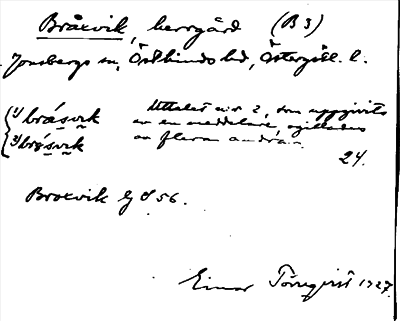 Bråxvik, herrgård (B 3)
Jonsbergs sn, Östkinds hd, Östergötl. l.
1) bråsvik Uttalet nr 2, som uppgivits
av en meddelare, ogillades
2) bråsvik av flera andra.
24.
Broxvik Gj d 56.
Einar Törnqvist 1927.